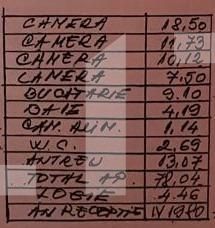 CAMERA 18,50
CAMERA 11,73
CAMERA 10,12
CAMERA 7,50
BUCATARIE 9.10
BAIE 4,19
CAM. ALIM. 1,14
W.C. 2,69
ANTREU 13,07
TOTAL AP. 78,04
LOGIE 4.46
AN RECEPTIE IV 1980